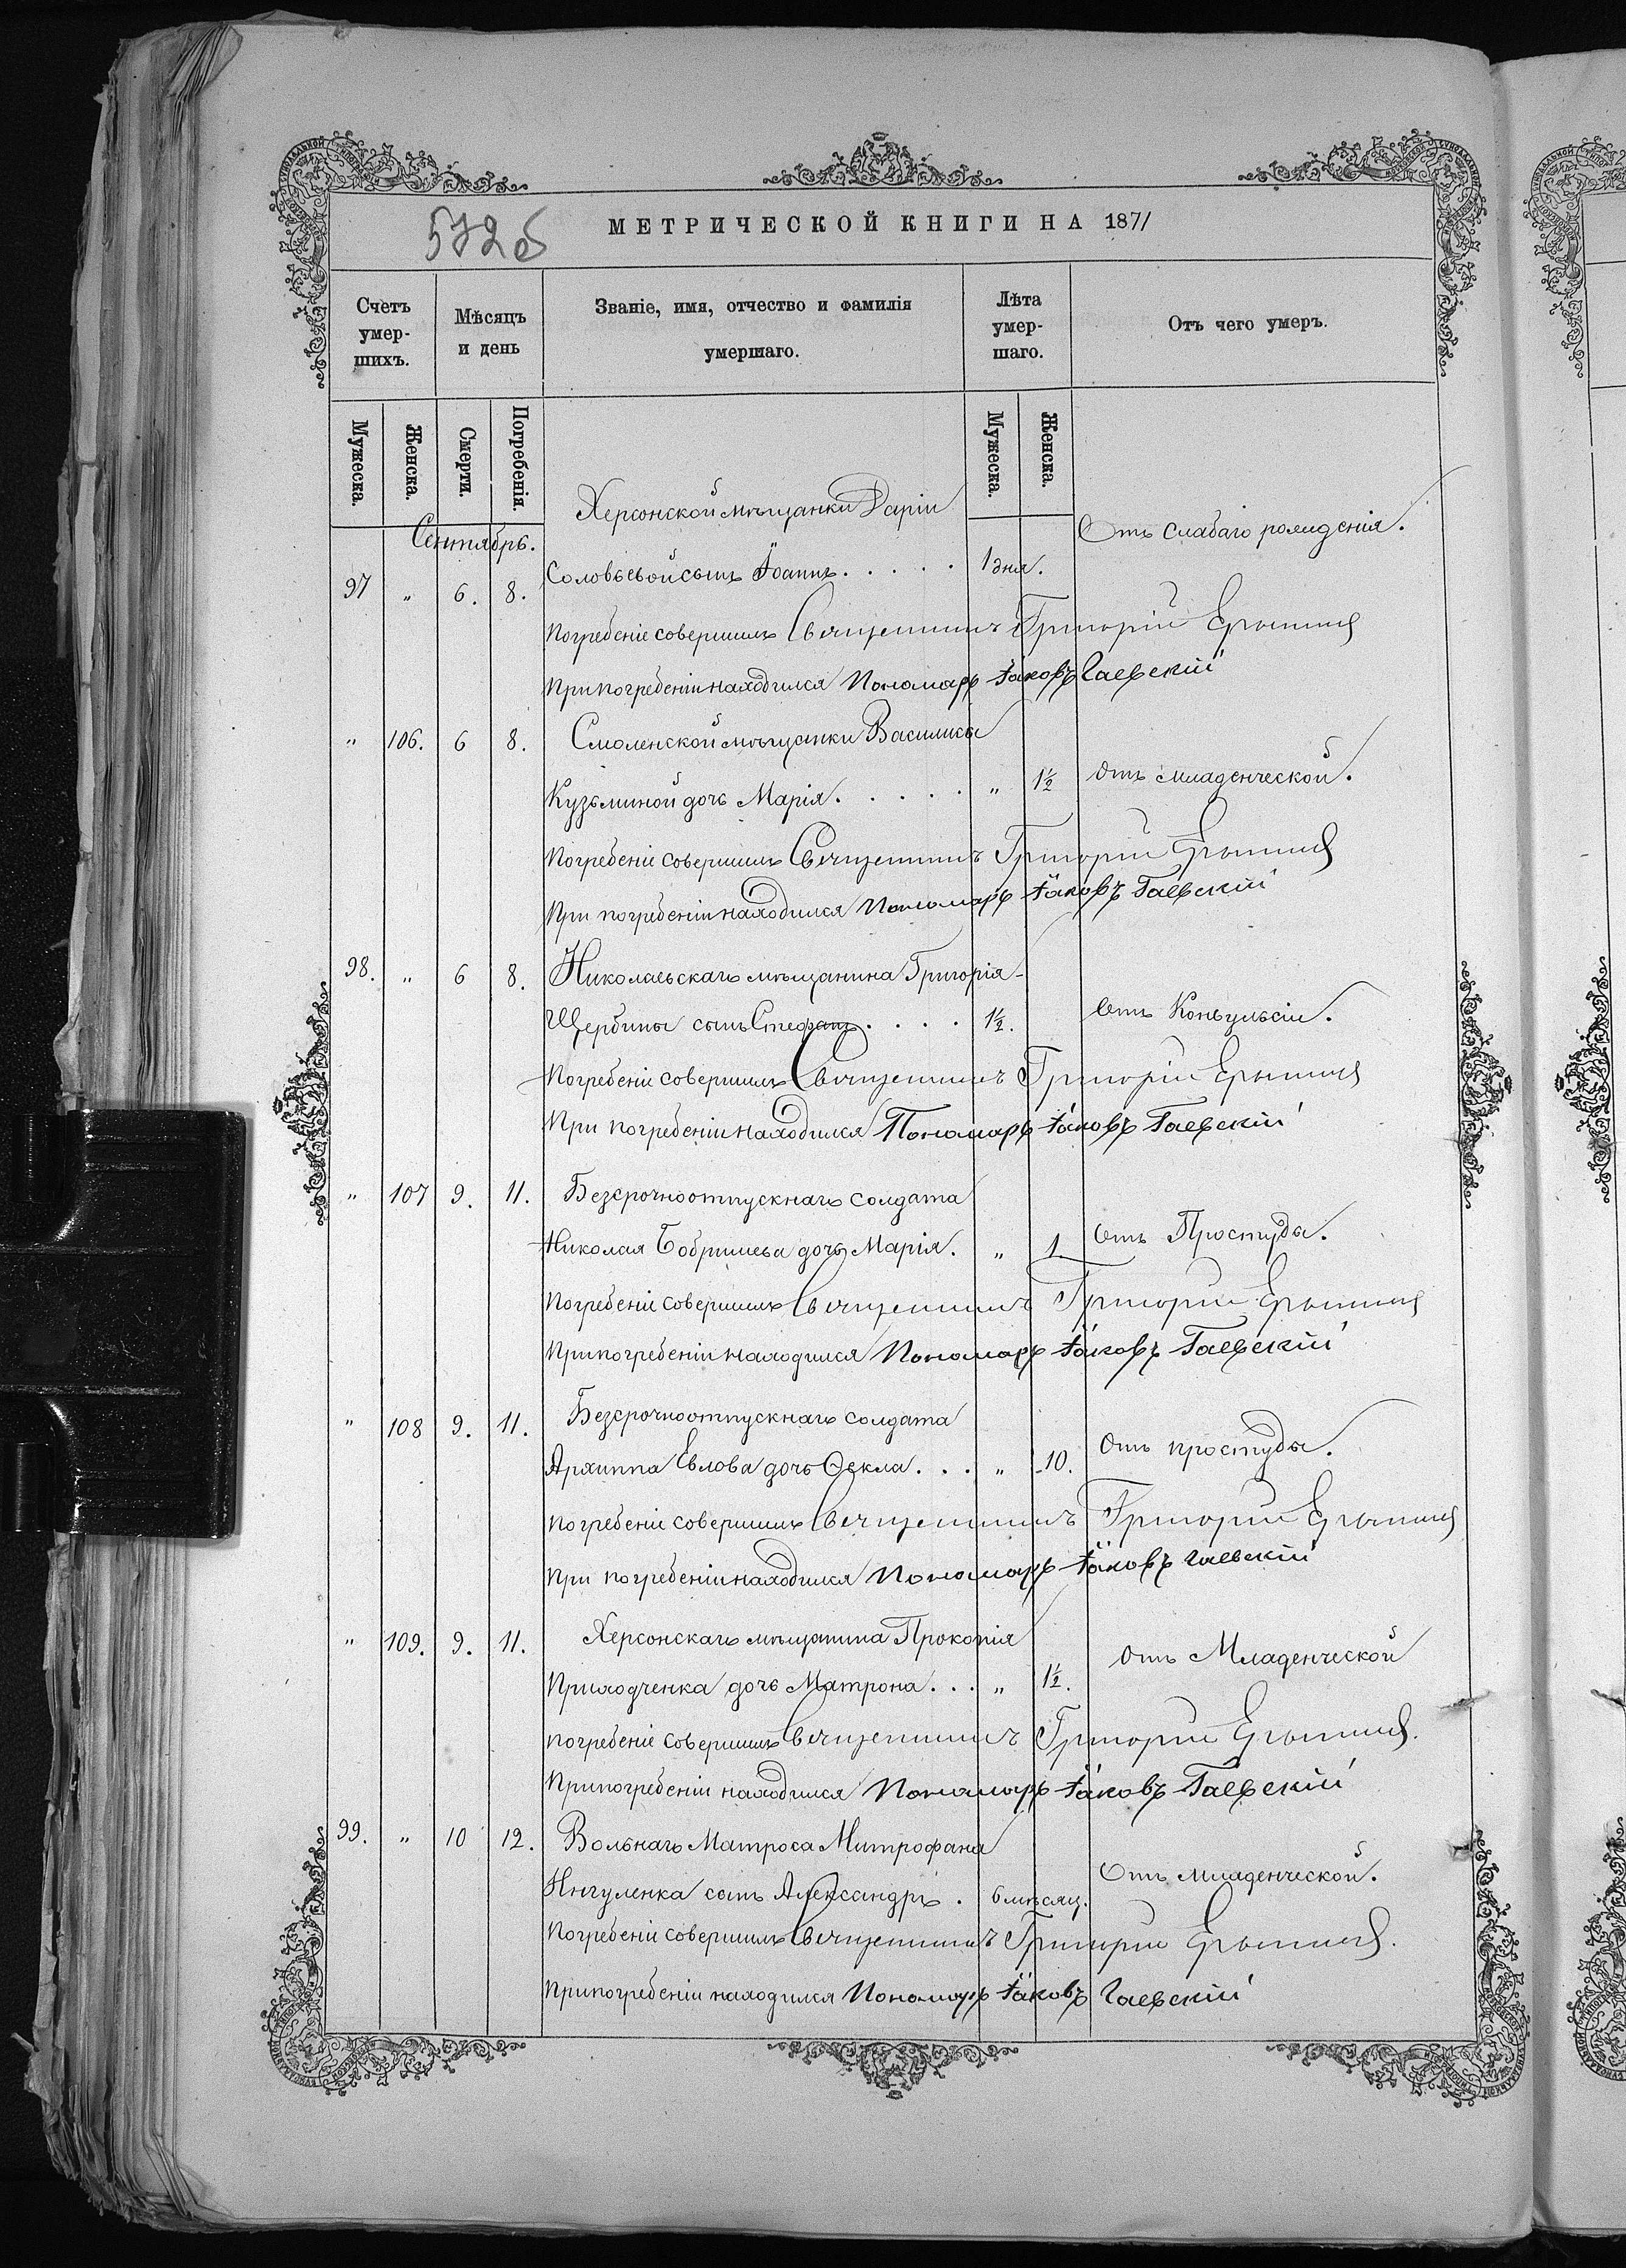 572 об
МЕТРИЧЕСКОЙ КНИГИ НА 1871
Счетъ умер-шихъ.
Мѣсяцъ и день
Званіе, имя, отчество и фамилія умершаго.
Лѣта умер-шаго.
Отъ чего умеръ.
Мужеска. Женска. Смерти. Погребенія. Мужеска. Женска.
Сентябрь.
Херсонской мѣщанки Даріи
97 " 6. 8. Соловьевой сынъ Іоаннъ. . . . . 1 дня. Отъ слабаго рожденія.
Погребеніе совершилъ Священникъ Григорій
При погребеніи находился Пономарь Іаковъ Гаевскій
" 106. 6 8. Смоленской мѣщанки Василисы
Кузьминой дочь Марія. . . . . " 1½ Отъ младенческой.
Погребеніе совершилъ Священникъ Григорій
При погребеніи находился Пономарь Іаковъ Гаевскій
98. " 6 8. Николаевскаго мѣщанина Григорія
Щербины сынъ Стефанъ . . . . 1½. Отъ Конвульсіи.
Погребеніе совершилъ Священникъ Григорій
При погребеніи находился Пономарь Іаковъ Гаевскій
" 107 9. 11. Безсрочноотпускнаго солдата
Николая Бобришева дочь Марія. " 1 Отъ Простуды.
Погребеніе совершилъ Священникъ Григорій
При погребеніи находился Пономарь Іаковъ Гаевскій
" 108 9. 11. Безсрочноотпускнаго солдата
Архиппа Евлова дочь Ѳекла. . . " 10. Отъ простуды.
Погребеніе совершилъ Священникъ Григорій
При погребеніи находился Пономарь Іаковъ Гаевскій
" 109. 9. 11. Херсонскаго мѣщанина Прокопія
Приходченка дочь Матрона. . . " 1½. Отъ Младенческой
Погребеніе совершилъ Священникъ Григорій
При погребеніи находился Пономарь Іаковъ Гаевскій
99. " 10 12. Вольнаго Матроса Митрофана
Ингуленка сынъ Александръ . 6 мѣсяц. Отъ младенческой.
Погребеніе совершилъ Священникъ Григорій
При погребеніи находился Пономарь Іаковъ Гаевскій